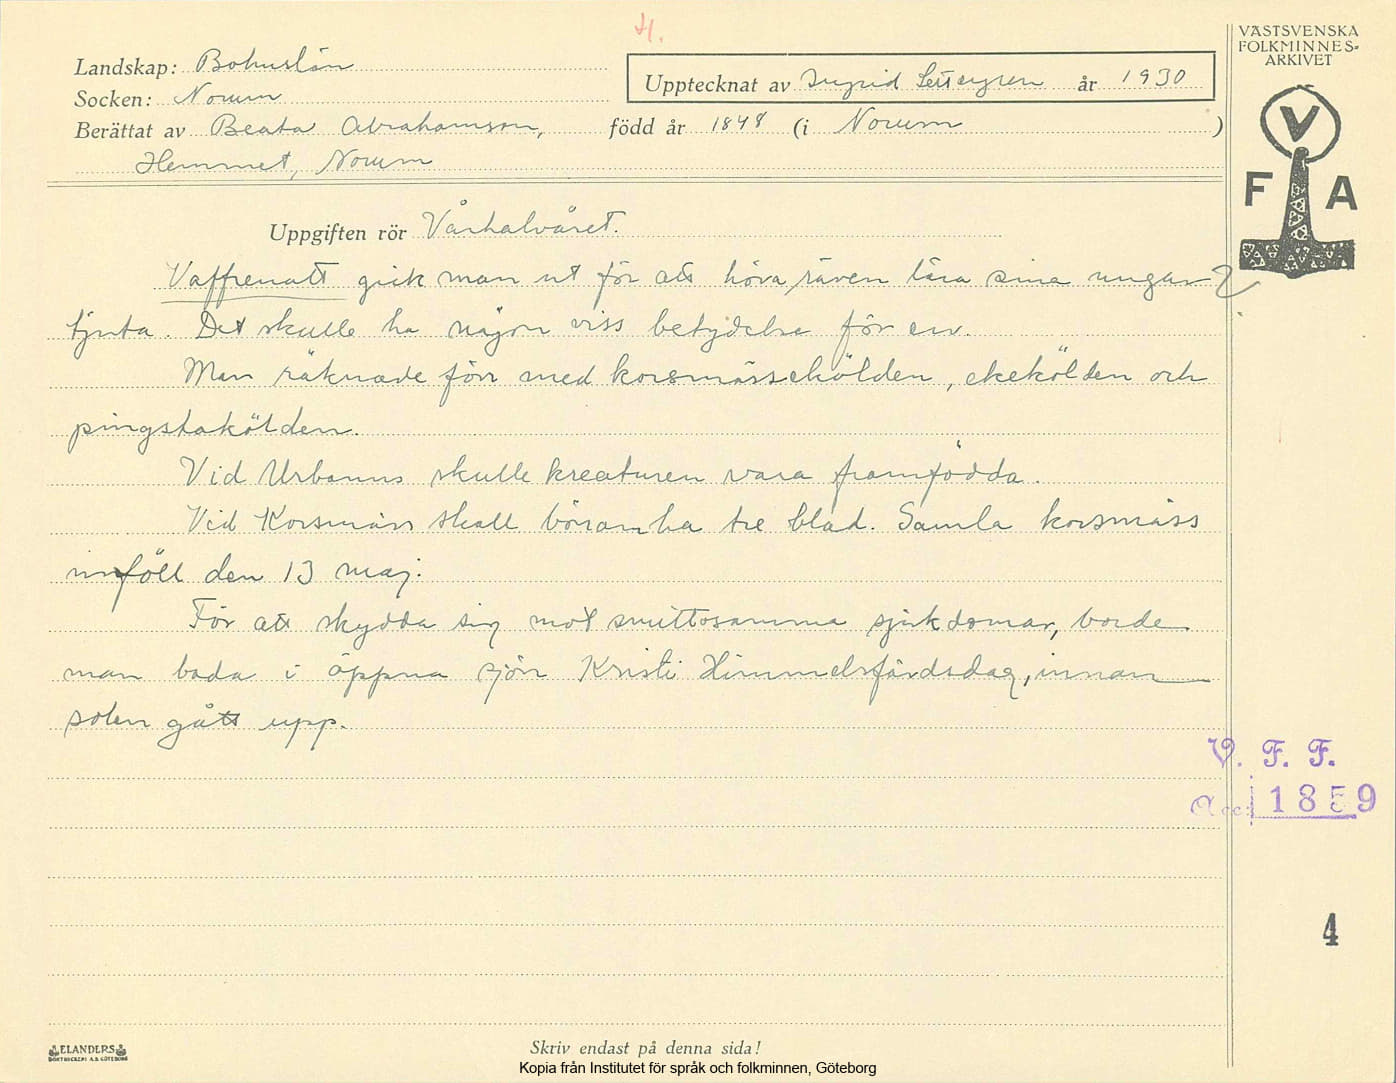 H.
VÄSTSVENSKA
FOLKMINNES-
ARKIVET
V
F A
Landskap: Bohuslän
Upptecknat av Ingrid år 1930
Socken: Norum
Berättat av Beata Abrahamson, född år 1848 (i Norum )
Hemmet, Norum
Uppgiften rör Vårhalvåret.
Vaffrenatt gick man ut för att höra räven lära sina ungar
tjuta. Det skulle ha någon viss betydelse för en.
Man räknade förr med korsmässekölden, ekekölden och
pingstakölden.
Vid Urbanus skulle kreaturen vara framfödda.
Vid Korsmäss skall bönorna ha tre blad. Gamla korsmäss
inföll den 13 maj.
För att skydda sig mot smittosamma sjukdomar, borde
man bada i öppna sjön Kristi Himmelsfärdsdag, innan
solen gått upp.
V. F. F.
Acc: 1859
4
ELANDERS
BOKTRYCKERI A.B. GÖTEBORG
Skriv endast på denna sida!
Kopia från Institutet för språk och folkminnen, Göteborg